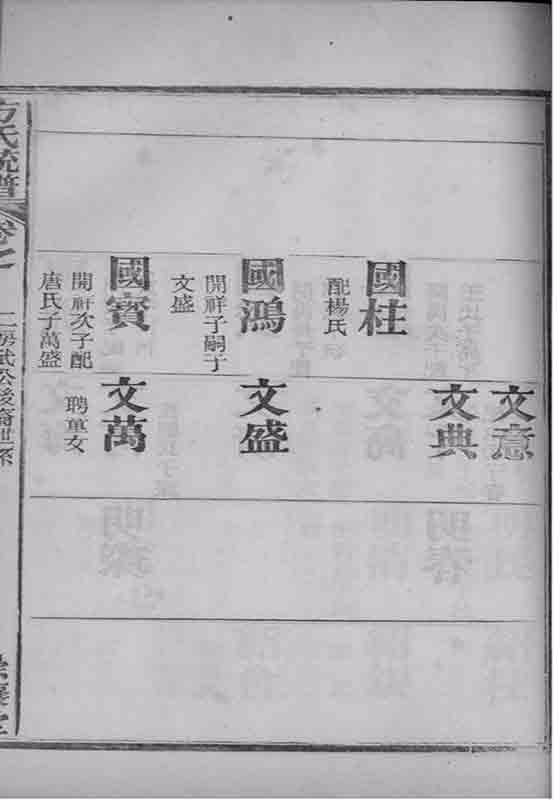 文意
文典
國柱
配楊氏
國鴻
開祥子嗣子
文盛
文盛
國寶
開祥次子配
唐氏子萬盛
文萬
聘單女
方氏統譜
卷之
二房武公後裔世系